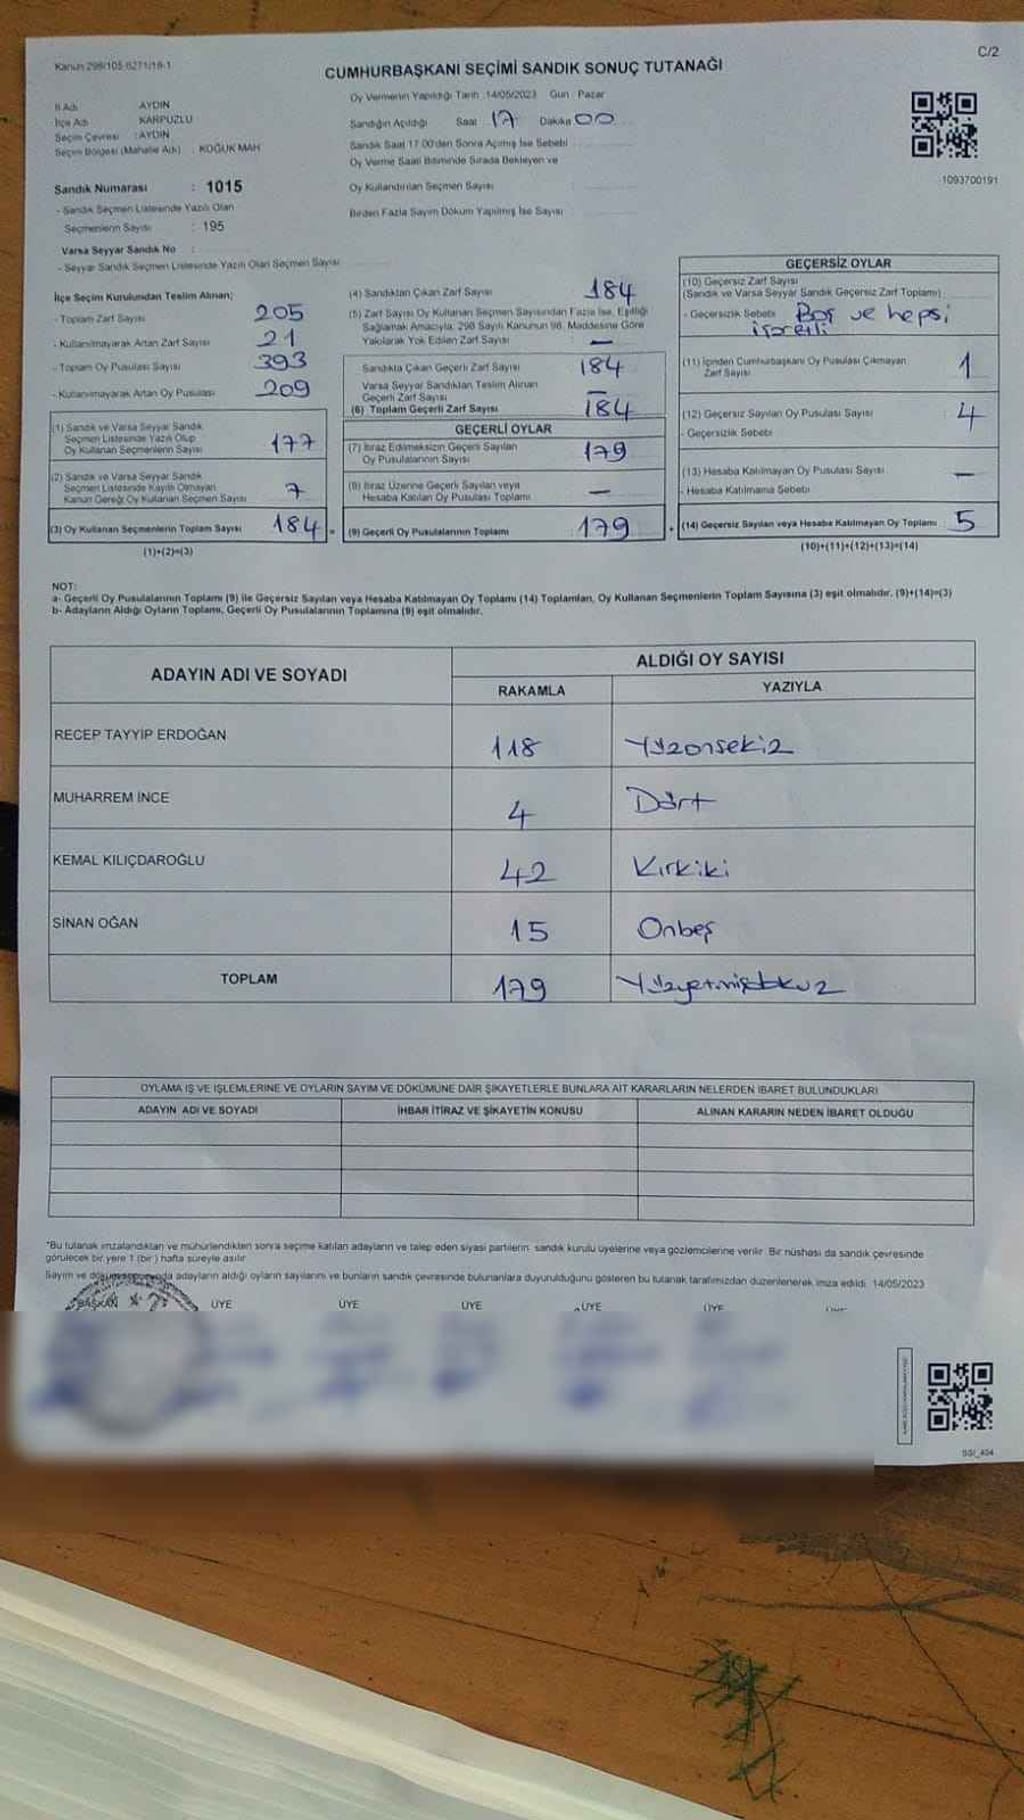 Kanun 298/105-6271/18-1
C/2
CUMHURBAŞKANI SEÇİMİ SANDIK SONUÇ TUTANAĞI
Oy Vermenin Yapıldığı Tarih :14/05/2023 Gün : Pazar
İl Adı AYDIN
İlçe Adı KARPUZLU
Seçim Çevresi : AYDIN
Seçim Bölgesi (Mahalle Adı) : KOĞUK MAH
Sandığın Açıldığı Saat 17 Dakika 00
Sandık Saat 17.00'den Sonra Açılmış İse Sebebi
Oy Verme Saati Bitiminde Sırada Bekleyen ve
Oy Kullandırılan Seçmen Sayısı
Birden Fazla Sayım Döküm Yapılmış İse Sayısı
1093700191
Sandık Numarası : 1015
- Sandık Seçmen Listesinde Yazılı Olan
Seçmenlerin Sayısı : 195
Varsa Seyyar Sandık No :
- Seyyar Sandık Seçmen Listesinde Yazılı Olan Seçmen Sayısı
İlçe Seçim Kurulundan Teslim Alınan;
- Toplam Zarf Sayısı 205
- Kullanılmayarak Artan Zarf Sayısı 21
- Toplam Oy Pusulası Sayısı 393
- Kullanılmayarak Artan Oy Pusulası 209
(1) Sandık ve Varsa Seyyar Sandık
Seçmen Listesinde Yazılı Olup
Oy Kullanan Seçmenlerin Sayısı 177
(2) Sandık ve Varsa Seyyar Sandık
Seçmen Listesinde Kayıtlı Olmayan
Kanun Gereği Oy Kullanan Seçmen Sayısı 7
(3) Oy Kullanan Seçmenlerin Toplam Sayısı 184 =
(1)+(2)=(3)
(4) Sandıktan Çıkan Zarf Sayısı 184
(5) Zarf Sayısı Oy Kullanan Seçmen Sayısından Fazla İse, Eşitliği
Sağlamak Amacıyla, 298 Sayılı Kanunun 98. Maddesine Göre
Yakılarak Yok Edilen Zarf Sayısı —
Sandıkta Çıkan Geçerli Zarf Sayısı 184
Varsa Seyyar Sandıktan Teslim Alınan
Geçerli Zarf Sayısı —
(6) Toplam Geçerli Zarf Sayısı 184
GEÇERLİ OYLAR
(7) İtiraz Edilmeksizin Geçerli Sayılan
Oy Pusulalarının Sayısı 179
(8) İtiraz Üzerine Geçerli Sayılan veya
Hesaba Katılan Oy Pusulası Toplamı —
(9) Geçerli Oy Pusulalarının Toplamı 179 +
GEÇERSİZ OYLAR
(10) Geçersiz Zarf Sayısı
(Sandık ve Varsa Seyyar Sandık Geçersiz Zarf Toplamı)
- Geçersizlik Sebebi Boş ve hepsi
işaretli
(11) İçinden Cumhurbaşkanı Oy Pusulası Çıkmayan
Zarf Sayısı 1
(12) Geçersiz Sayılan Oy Pusulası Sayısı 4
- Geçersizlik Sebebi
(13) Hesaba Katılmayan Oy Pusulası Sayısı —
- Hesaba Katılmama Sebebi
(14) Geçersiz Sayılan veya Hesaba Katılmayan Oy Toplamı 5
(10)+(11)+(12)+(13)=(14)
NOT:
a- Geçerli Oy Pusulalarının Toplamı (9) ile Geçersiz Sayılan veya Hesaba Katılmayan Oy Toplamı (14) Toplamları, Oy Kullanan Seçmenlerin Toplam Sayısına (3) eşit olmalıdır. (9)+(14)=(3)
b- Adayların Aldığı Oyların Toplamı, Geçerli Oy Pusulalarının Toplamına (9) eşit olmalıdır.
ADAYIN ADI VE SOYADI ALDIĞI OY SAYISI
RAKAMLA YAZIYLA
RECEP TAYYİP ERDOĞAN 118 Yüzonsekiz
MUHARREM İNCE 4 Dört
KEMAL KILIÇDAROĞLU 42 Kırkiki
SİNAN OĞAN 15 Onbeş
TOPLAM 179 Yüzyetmişdokuz
OYLAMA İŞ VE İŞLEMLERİNE VE OYLARIN SAYIM VE DÖKÜMÜNE DAİR ŞİKAYETLERLE BUNLARA AİT KARARLARIN NELERDEN İBARET BULUNDUKLARI
ADAYIN ADI VE SOYADI İHBAR İTİRAZ VE ŞİKAYETİN KONUSU ALINAN KARARIN NEDEN İBARET OLDUĞU
*Bu tutanak imzalandıktan ve mühürlendikten sonra seçime katılan adayların ve talep eden siyasi partilerin sandık kurulu üyelerine veya gözlemcilerine verilir. Bir nüshası da sandık çevresinde
görülecek bir yere 1 (bir) hafta süreyle asılır.
Sayım ve döküm sonunda adayların aldığı oyların sayılarını ve bunların sandık çevresinde bulunanlara duyurulduğunu gösteren bu tutanak tarafımızdan düzenlenerek imza edildi. 14/05/2023
BAŞKAN ÜYE ÜYE ÜYE ÜYE ÜYE
SSI_404